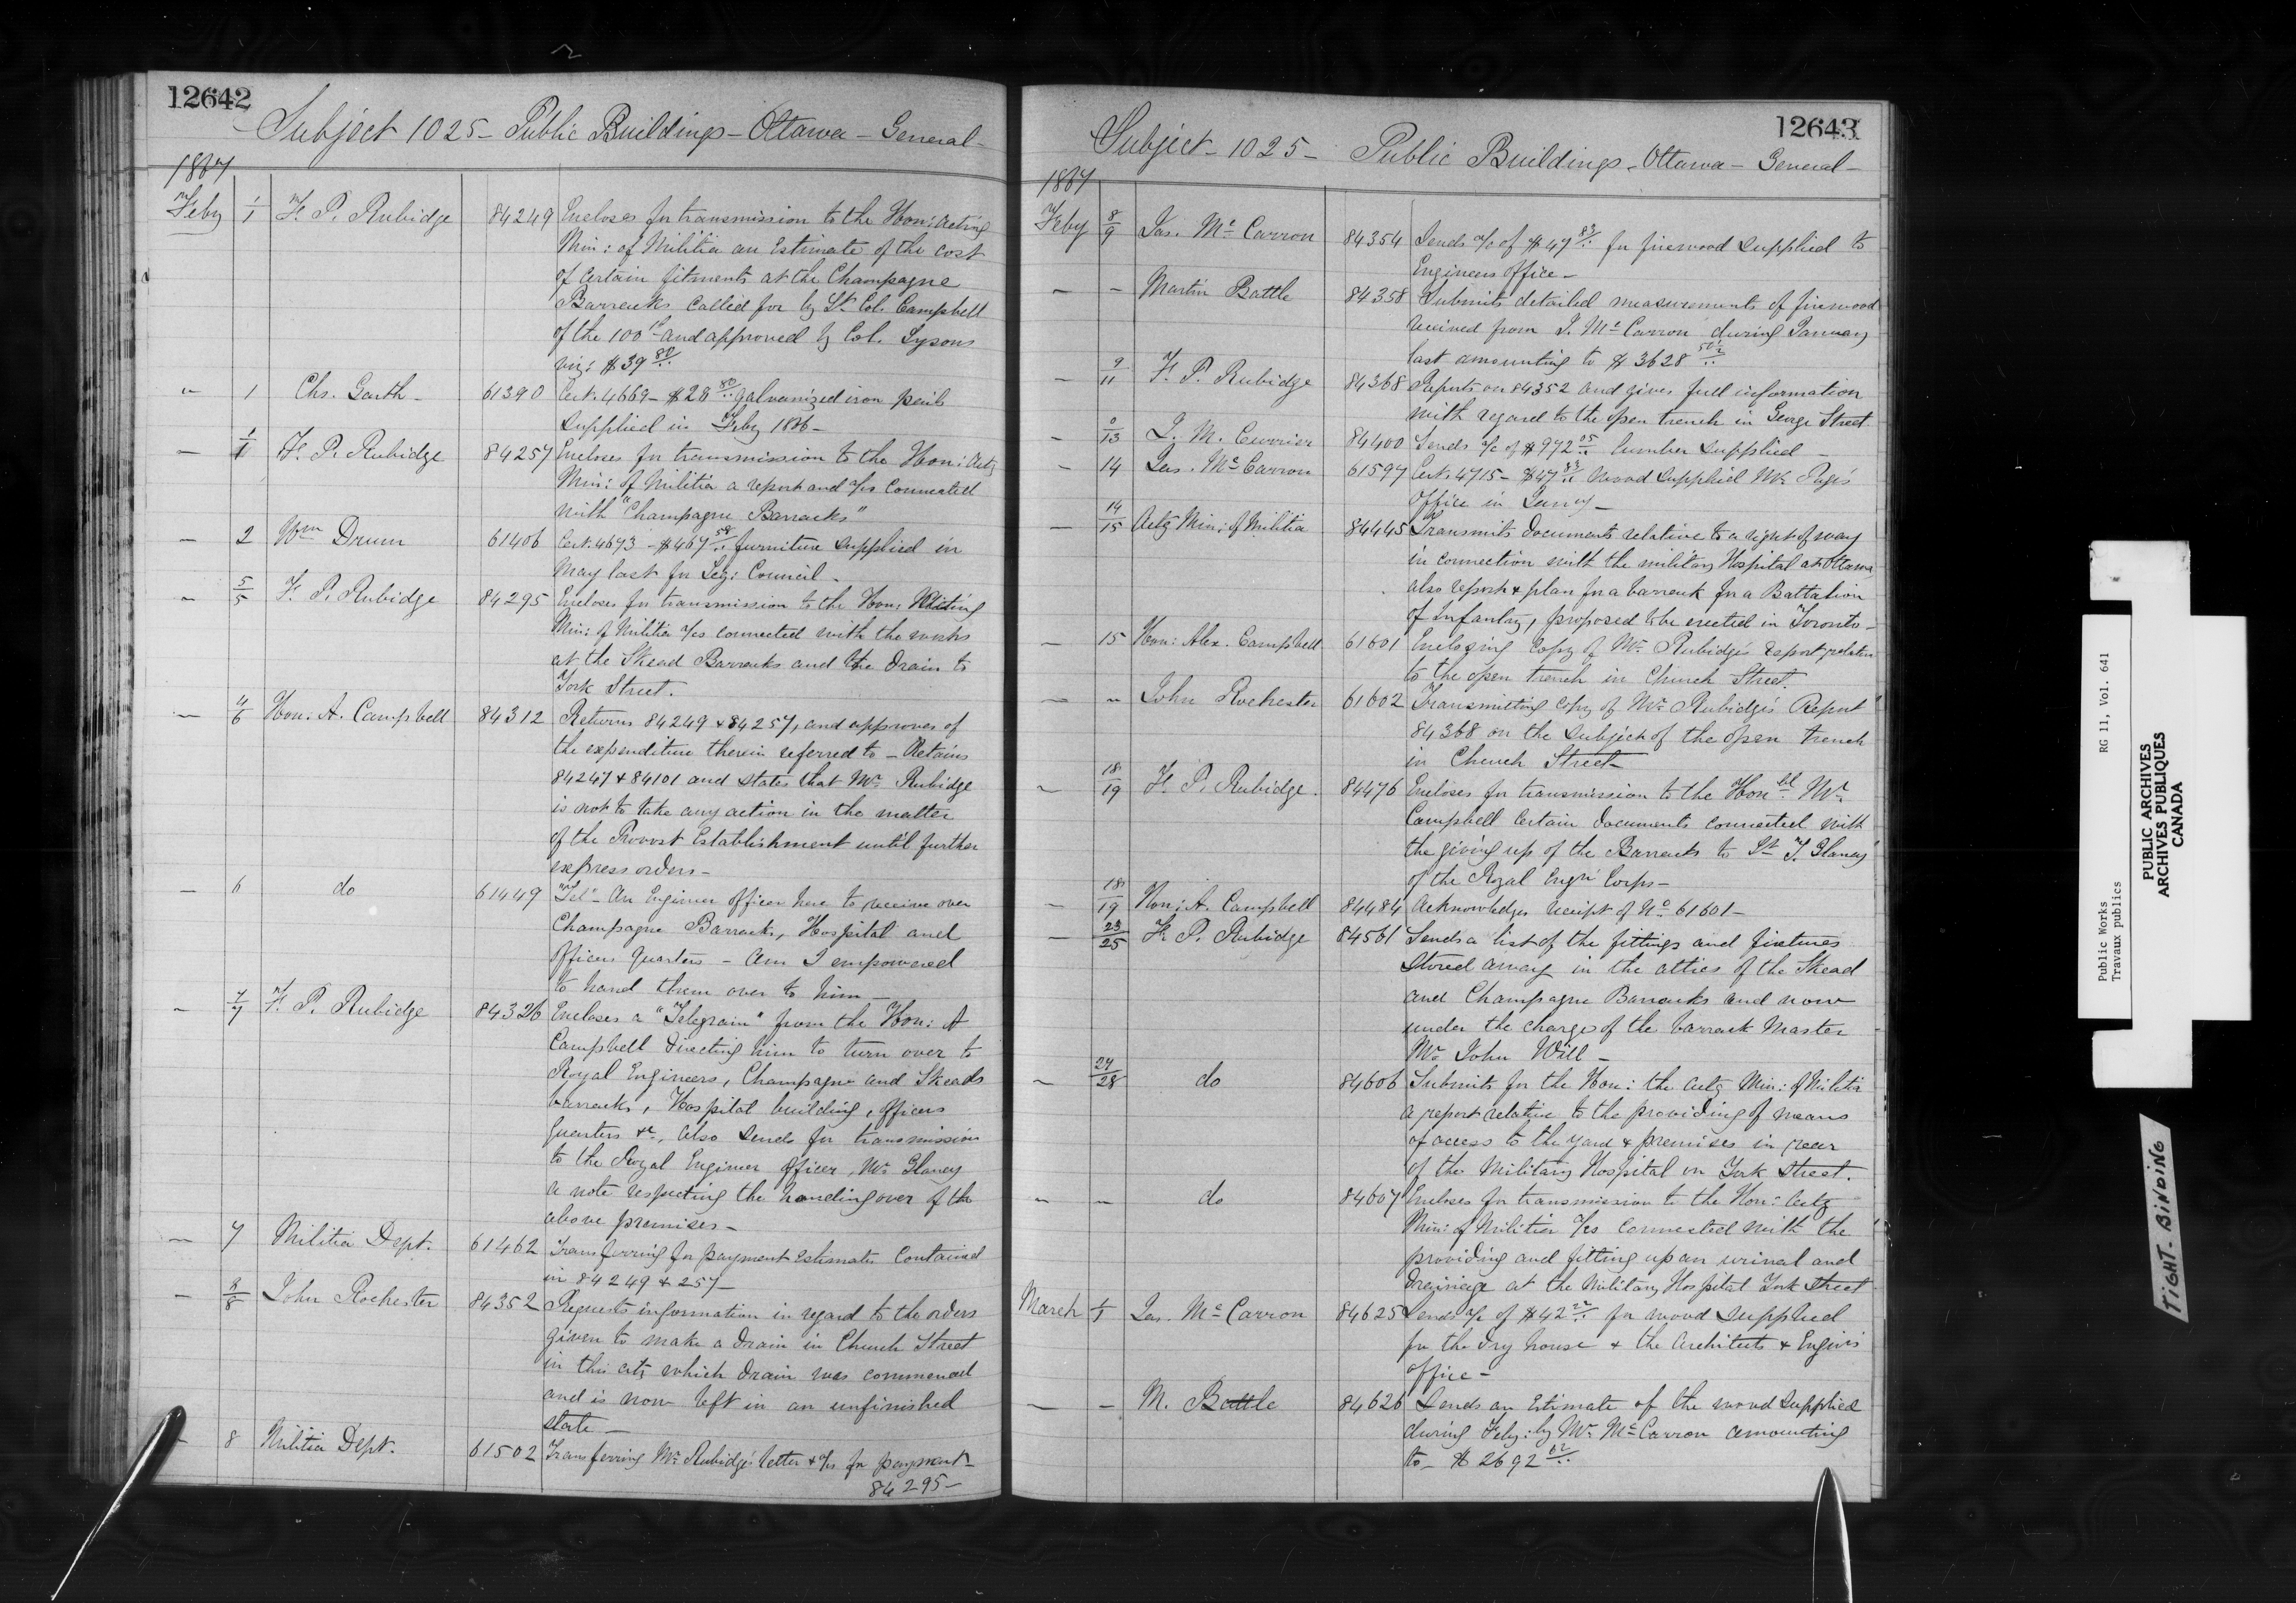 12642
Subject 1025 - Public Buildings - Ottawa - General -
1867
Feby 1/1 F. P. Rubidge 84249 Encloses for transmission to the Hon: Acting
Min: of Militia an Estimate of the cost
of certain fitments at the Champagne
Barracks called for by Lt. Col. Campbell
of the 100th and approved by Col. Lysons
viz: $39 80/..
" 1 Chs. Garth - 61390 Cert. 4669 - $28 80/.. galvanized iron pails
supplied in Feby 1866 -
- 1/1 F. P. Rubidge 84257 Encloses for transmission to the Hon: Actg
Min: of Militia a report and a/cs connected
with "Champagne Barracks"
- 2 Wm Drum 61406 Cert. 4693 - $467 50/.. furniture supplied in
May last for Leg: Council -
- 5/5 F. P. Rubidge 84295 Encloses for transmission to the Hon: Acting
Min: of Militia a/cs connected with the works
at the Skead Barracks and the drain to
York Street.
- 4/6 Hon: A. Campbell 84312 Returns 84249 & 84257, and approves of
the expenditure therein referred to - Retains
84247 & 84101 and states that Mr. Rubidge
is not to take any action in the matter
of the Provost Establishment until further
express orders -
- 6 do 61449 "Tel" - An Engineer Officer here to receive over
Champagne Barracks, Hospital and
Officers quarters - Am I empowered
to hand them over to him -
- 7/7 F. P. Rubidge 84326 Encloses a "Telegram" from the Hon: A
Campbell directing him to turn over to
Royal Engineers, Champagne and Skeads
barracks, Hospital building, officers
quarters &c, also sends for transmission
to the Royal Engineer Officer, Mr. Glancy
a note respecting the handing over of the
above premises -
- 7 Militia Dept. 61462 Transferring for payment Estimates contained
in 84249 & 257 -
- 8/8 John Rochester 84352 Requests information in regard to the orders
given to make a drain in Church Street
in this city which drain was commenced
and is now left in an unfinished
state -
- 8 Militia Dept. 61502 Transferring Mr. Rubidge's letter & a/cs for payment -
84295 -
12643
Subject - 1025 - Public Buildings - Ottawa - General -
1867
Feby 8/9 Jas. Mc Carron 84354 Sends a/c of $47 83/.. for firewood supplied to
Engineers office -
- - Martin Battle 84358 Submits detailed measurements of firewood
received from J. Mc Carron during January
last amounting to $3628 50½/..
- 9/11 F. P. Rubidge 84368 Reports on 84352 and gives full information
with regard to the open trench in George Street
- 0/13 J. M. Currier 84400 Sends a/c of $972 05/.. lumber supplied -
- 14 Jas. Mc Carron 61597 Cert. 4715 - $47 83/.. wood supplied Mr. Page's
Office in Janry -
- 14/15 Actg Min: of Militia 84445 Transmits documents relative to a right of way
in connection with the military Hospital at Ottawa,
also report & plan for a barrack for a Battalion
of Infantry, proposed to be erected in Toronto -
- 15 Hon: Alex. Campbell 61601 Enclosing copy of Mr. Rubidge's report relative
to the open trench in Church Street.
- " John Rochester 61602 Transmitting copy of Mr. Rubidge's Report
84368 on the subject of the open trench
in Church Street -
~ 18/19 F. P. Rubidge. 84476 Encloses for transmission to the Honbl Mr.
Campbell certain documents connected with
the giving up of the Barracks to Lt. J. Glancy
of the Royal Engr Corps -
- 18/19 Hon: A. Campbell 84484 Acknowledges receipt of No. 61601 -
- 23/25 F. P. Rubidge 84561 Sends a list of the fittings and fixtures
stored away in the attics of the Skead
and Champagne Barracks and now
under the charge of the barrack Master
Mr. John Will -
~ 27/28 do 84606 Submits for the Hon: the Actg Min: of Militia
a report relative to the providing of means
of access to the yard & premises in rear
of the Military Hospital on York Street.
~ - do 84607 Encloses for transmission to the Hon: Actg
Min: of Militia a/cs connected with the
providing and fitting up an urinal and
drainage at the Military Hospital York Street
March 1/1 Jas. Mc Carron 84625 Sends a/c of $42 22/.. for wood supplied
for the dry house & the Architects & Engin's
office -
- - M. Battle 84626 Sends an Estimate of the wood supplied
during Feby: by Mr. Mc Carron amounting
to - $2692 02/..
Public Works RG 11, Vol. 641
Travaux publics
PUBLIC ARCHIVES
ARCHIVES PUBLIQUES
CANADA
TIGHT-BINDING